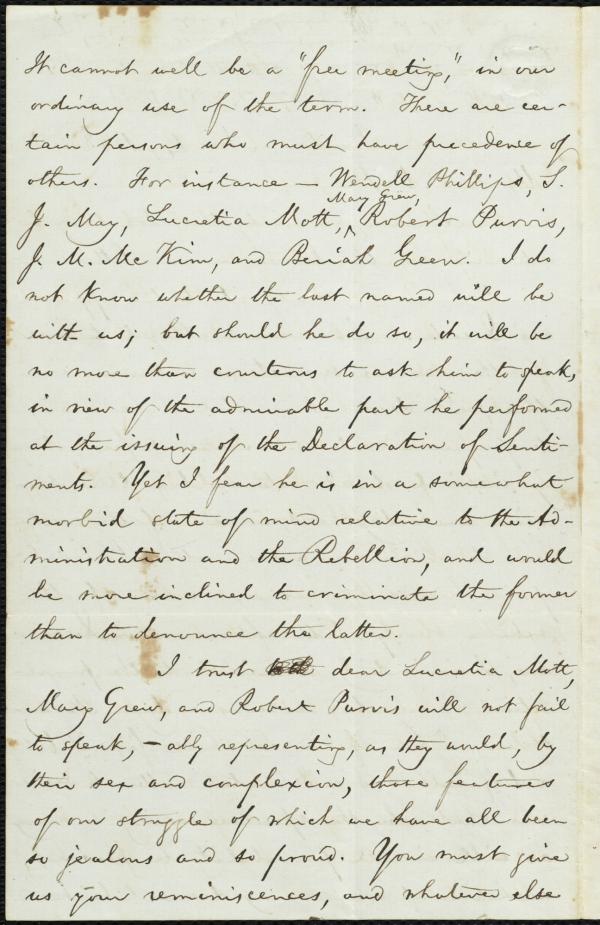 It cannot well be a "free meeting," in our
ordinary use of the term. There are cer-
tain persons who must have precedence of
others. For instance — Wendell Phillips, S.
Mary Grew,
J. May, Lucretia Mott, ^ Robert Purvis,
J. M. McKim, and Beriah Green. I do
not know whether the last named will be
with us; but should he do so, it will be
no more than courteous to ask him to speak,
in view of the admirable part he performed
at the issuing of the Declaration of Senti-
ments. Yet I fear he is in a somewhat
morbid state of mind relative to the Ad-
ministration and the Rebellion, and would
be more inclined to criminate the former
than to denounce the latter.
I trust dear Lucretia Mott,
Mary Grew, and Robert Purvis will not fail
to speak, — ably representing, as they would, by
their sex and complexion, those features
of our struggle of which we have all been
so jealous and so proud. You must give
us your reminiscences, and whatever else